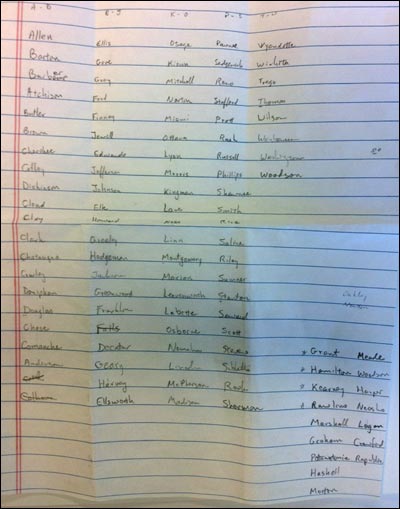 A-D E-J K-O P-S T-W
Allen Ellis Osage Pawnee Wyandotte
Barton Gove Kiowa Sedgwick Wichita
Barbour Gray Mitchell Reno Trego
Atchison Ford Norton Stafford Thomas
Butler Finney Miami Pratt Wilson
Brown Jewell Ottawa Rush
Cherokee Edwards Lyon Russell Washington
Coffey Jefferson Morris Phillips Woodson
Dickinson Johnson Kingman Shawnee
Cloud Elk Lane Smith
Clay Howard Ness Rice
Clark Greeley Linn Saline
Chatauqua Hodgeman Montgomery Riley
Cowley Jackson Marion Sumner
Doniphan Greenwood Leavenworth Stanton
Douglas Franklin Labette Seward
Chase Osborne Scott
Comanche Decatur Nemaha
Anderson Geary Lincoln
Harvey McPherson
Ellsworth Madison Sherman
Grant Meade
Hamilton Woodson
Kearney Harper
Rawlins Neosho
Marshall Logan
Graham Crawford
Republic
Haskell
Morton